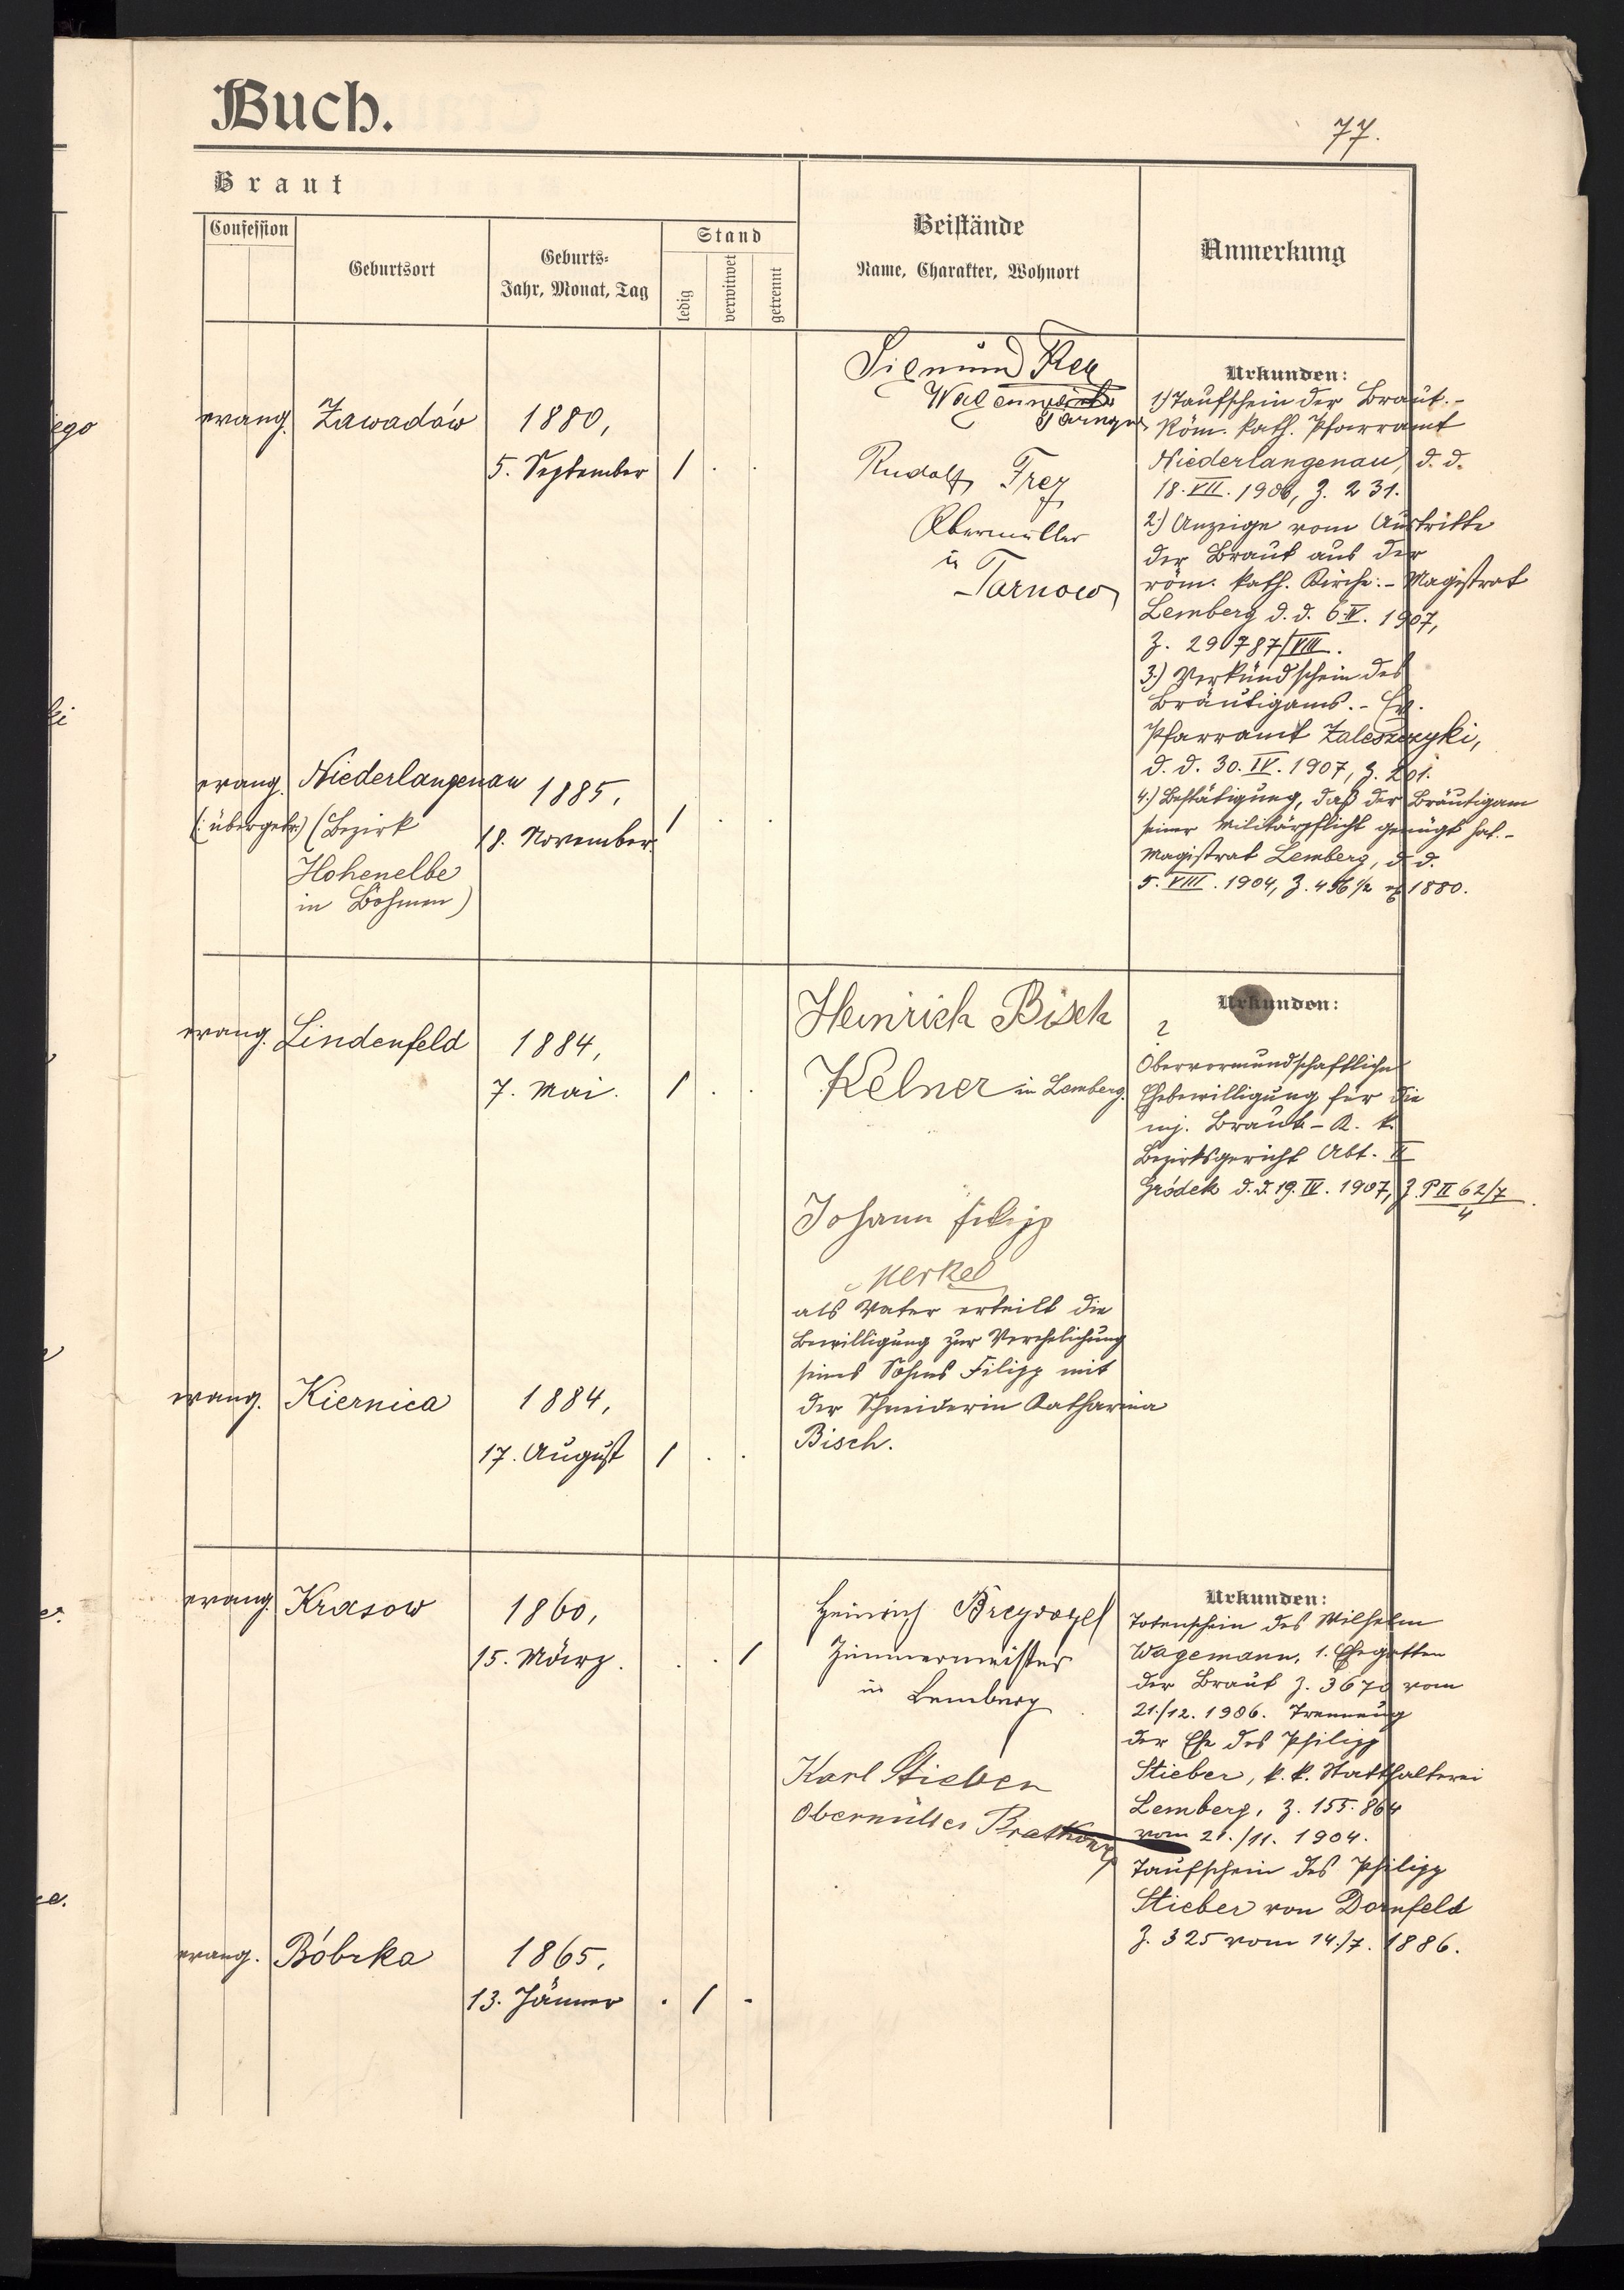 Buch.
77.
Braut
Confession
Geburtsort
Geburts-
Jahr, Monat, Tag
Stand
ledig
verwitwet
getrennt
Beistände
Name, Charakter, Wohnort
Anmerkung
evang. Zawadów 1880,
5. September 1 . .
evang. Niederlangenau 1885,
(: übergetr:) (Bezirk 18. November. 1 . .
Hohenelbe
in Böhmen)
Sigmund
Rudolf Frey
Obermüller
in
Tarnow
Urkunden:
1.) Taufschein der Braut. -
Röm. kath. Pfarramt
Niederlangenau, d. d.
18. VII. 1906, Z. 231.
2.) Anzeige vom Austritte
der Braut aus der
röm. kath. Kirche. - Magistrat
Lemberg d. d. 6. IV. 1907,
Z. 29787/VIII.
3.) Verkündschein des
Bräutigams. - Ev.
Pfarramt Zaleszczyki,
d. d. 30. IV. 1907, Z. 201.
4.) Bestätigung, daß der Bräutigam
seiner Militärpflicht genügt hat. -
Magistrat Lemberg, d. d.
5. VIII. 1904, Z. 456 1/2 ex 1880.
evang. Lindenfeld 1884,
7. Mai. 1 . .
evang. Kiernica 1884,
17. August 1 . .
Heinrich Bisch
Kelner in Lemberg.
Johann Filipp
Merkel
als Vater erteilt die
Bewilligung zur Verehelichung
seines Sohnes Filipp mit
der Schneiderin Katharina
Bisch.
Urkunden:
?
Obervormundschaftliche
Ehebewilligung für die
mj. Braut - K. k.
Bezirksgericht Abt. II
Gródek d. d. 19. IV. 1907, Z. P II 62/7
4
evang. Krasow 1860,
15. März. . . 1
evang. Bóbrka 1865,
13. Jänner . 1 -
Heinrich Breyvogel
Zimmermeister
in Lemberg
Karl Stieber
Obermüller
Urkunden:
Totenschein des Wilhelm
Wagemann, 1. Ehegatten
der Braut Z. 3670 vom
21./12. 1906. Trennung
der Ehe des Philipp
Stieber, k. k. Statthalterei
Lemberg, Z. 155.864
vom 21./11. 1904.
Taufschein des Philipp
Stieber von Dornfeld
Z. 325 vom 14./7. 1886.